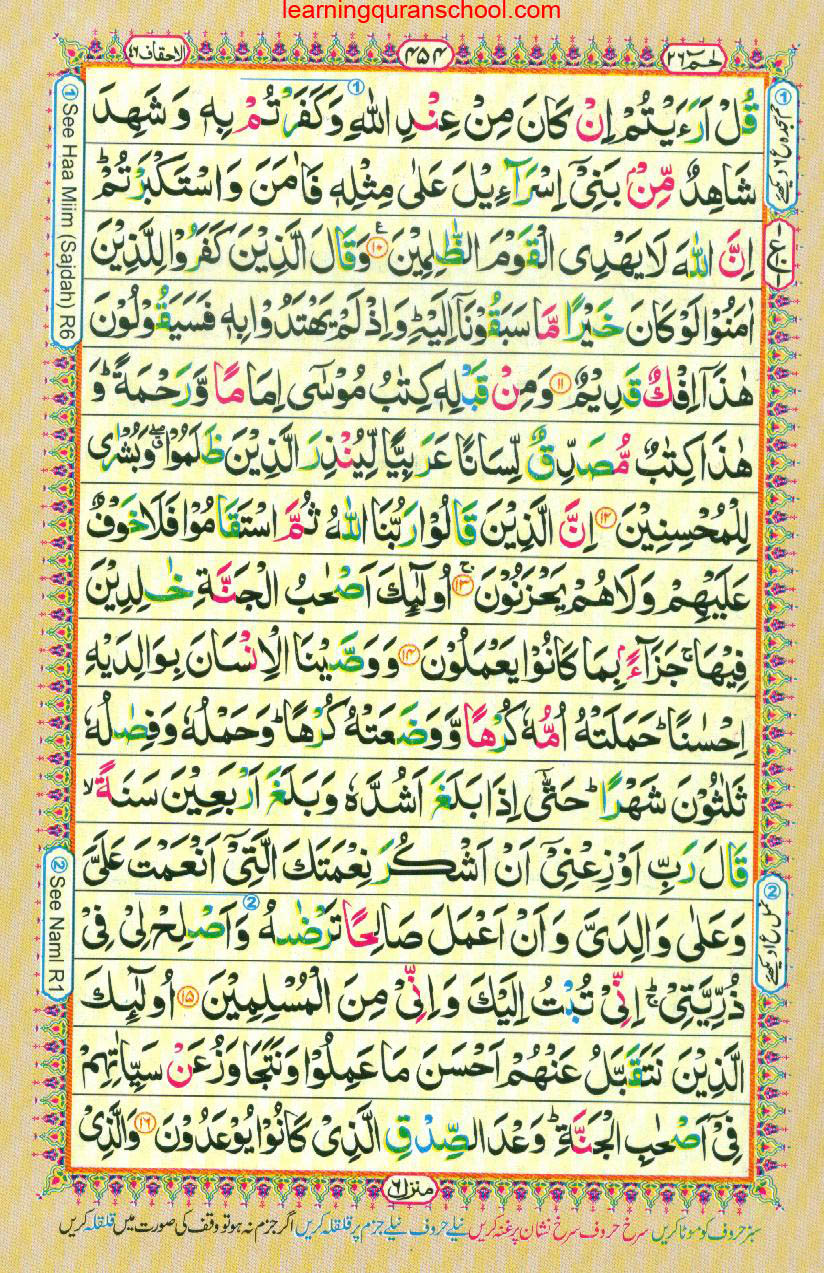 learningquranschool.com
الاحقاف ٤٦
٤٥٤
حٰمٓ ٢٦
قُلْ اَرَءَيْتُمْ اِنْ كَانَ مِنْ عِنْدِ اللّٰهِ وَكَفَرْتُمْ بِهٖ وَ شَهِدَ
شَاهِدٌ مِّنْۢ بَنِيْٓ اِسْرَآءِيْلَ عَلٰى مِثْلِهٖ فَاٰمَنَ وَ اسْتَكْبَرْتُمْ ؕ
اِنَّ اللّٰهَ لَا يَهْدِى الْقَوْمَ الظّٰلِمِيْنَ ۟۠ ١٠ وَقَالَ الَّذِيْنَ كَفَرُوْا لِلَّذِيْنَ
اٰمَنُوْا لَوْ كَانَ خَيْرًا مَّا سَبَقُوْنَآ اِلَيْهِ ؕ وَ اِذْ لَمْ يَهْتَدُوْا بِهٖ فَسَيَقُوْلُوْنَ
هٰذَآ اِفْكٌ قَدِيْمٌ ١١ وَمِنْ قَبْلِهٖ كِتٰبُ مُوْسٰٓى اِمَامًا وَّرَحْمَةً ؕ وَ
هٰذَا كِتٰبٌ مُّصَدِّقٌ لِّسَانًا عَرَبِيًّا لِّيُنْذِرَ الَّذِيْنَ ظَلَمُوْا ۖۗ وَبُشْرٰى
لِلْمُحْسِنِيْنَ ١٢ اِنَّ الَّذِيْنَ قَالُوْا رَبُّنَا اللّٰهُ ثُمَّ اسْتَقَامُوْا فَلَا خَوْفٌ
عَلَيْهِمْ وَلَا هُمْ يَحْزَنُوْنَ ۚ ١٣ اُولٰٓئِكَ اَصْحٰبُ الْجَنَّةِ خٰلِدِيْنَ
فِيْهَا ۚ جَزَآءًۢ بِمَا كَانُوْا يَعْمَلُوْنَ ١٤ وَوَصَّيْنَا الْاِنْسَانَ بِوَالِدَيْهِ
اِحْسٰنًا ؕ حَمَلَتْهُ اُمُّهٗ كُرْهًا وَّوَضَعَتْهُ كُرْهًا ؕ وَحَمْلُهٗ وَفِصٰلُهٗ
ثَلٰثُوْنَ شَهْرًا ؕ حَتّٰٓى اِذَا بَلَغَ اَشُدَّهٗ وَبَلَغَ اَرْبَعِيْنَ سَنَةً ۙ
قَالَ رَبِّ اَوْزِعْنِيْٓ اَنْ اَشْكُرَ نِعْمَتَكَ الَّتِيْٓ اَنْعَمْتَ عَلَيَّ
وَعَلٰى وَالِدَيَّ وَ اَنْ اَعْمَلَ صَالِحًا تَرْضٰىهُ وَاَصْلِحْ لِيْ فِيْ
ذُرِّيَّتِيْ ؕۚ اِنِّيْ تُبْتُ اِلَيْكَ وَ اِنِّيْ مِنَ الْمُسْلِمِيْنَ ١٥ اُولٰٓئِكَ
الَّذِيْنَ نَتَقَبَّلُ عَنْهُمْ اَحْسَنَ مَا عَمِلُوْا وَنَتَجَاوَزُ عَنْ سَيِّاٰتِهِمْ
فِيْٓ اَصْحٰبِ الْجَنَّةِ ؕ وَعْدَ الصِّدْقِ الَّذِيْ كَانُوْا يُوْعَدُوْنَ ١٦ وَالَّذِيْ
① See Haa Miim (Sajdah) R6
② See Naml R1
منزل ٦
سبز حروف کو موٹا کریں سرخ حروف سرخ نشان پر غنہ کریں نیلے حروف نیلے جزم پر قلقلہ کریں اگر جزم نہ ہو تو وقف کی صورت میں قلقلہ کریں